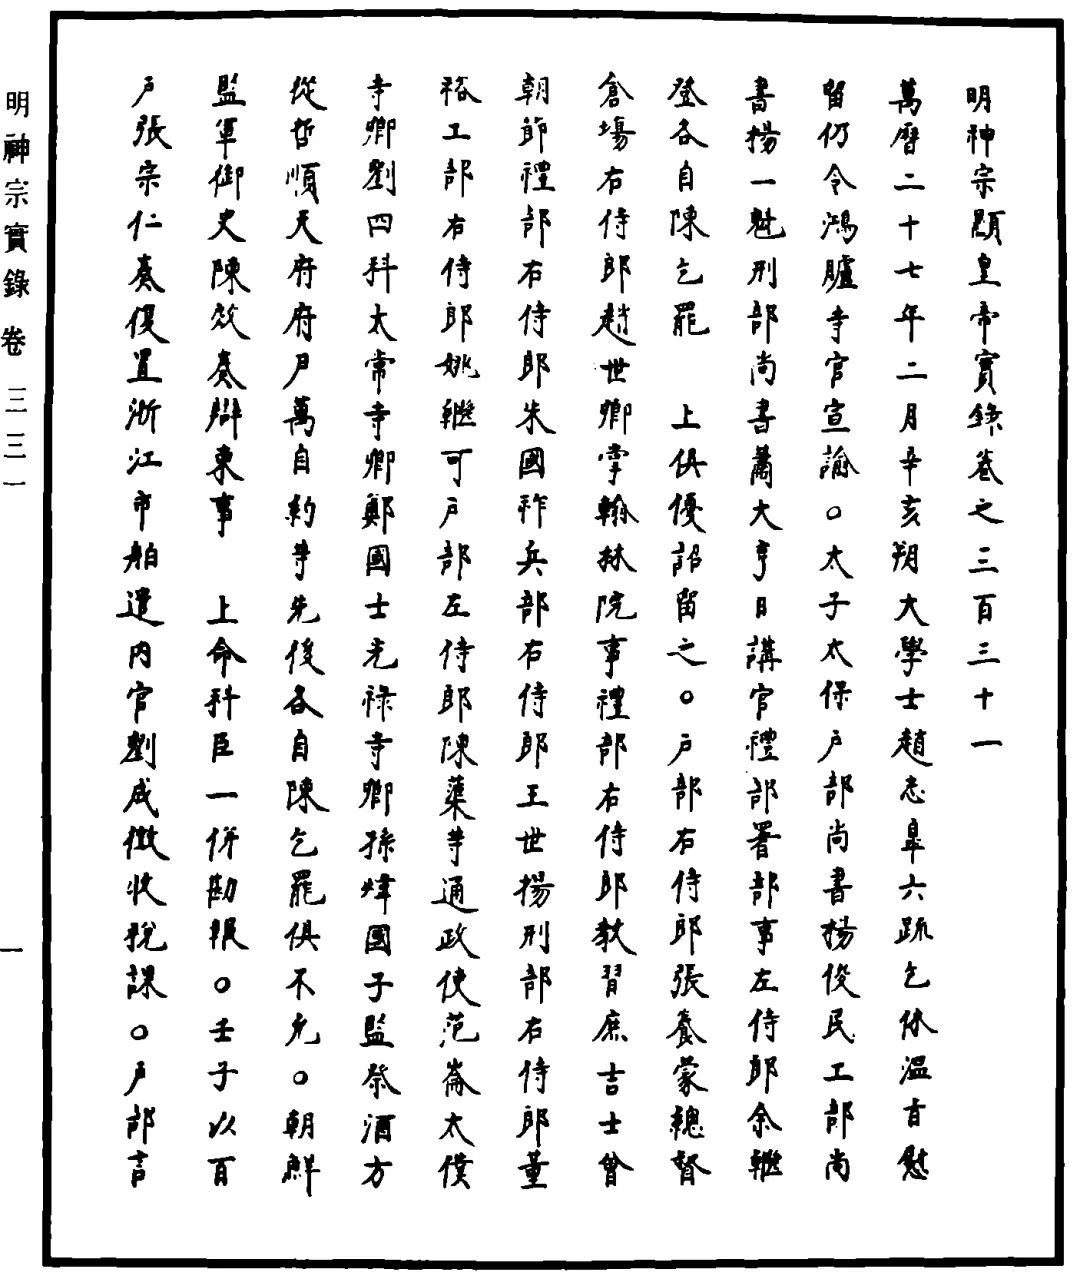 明神宗顯皇帝實錄卷之三百三十一
萬曆二十七年二月辛亥朔大學士趙志皐六疏乞休溫旨慰
留仍令鴻臚寺官宣諭○太子太保戶部尚書楊俊民工部尚
書楊一魁刑部尚書蕭大亨日講官禮部署部事左侍郎余繼
登各自陳乞罷　上俱優詔留之○戶部右侍郎張養蒙總督
倉場右侍郎趙世卿掌翰林院事禮部右侍郎教習庶吉士曾
朝節禮部右侍郎朱國祚兵部右侍郎王世揚刑部右侍郎董
裕工部右侍郎姚繼可戶部左侍郎陳蕖等通政使范崙太僕
寺卿劉四科太常寺卿鄭國士光祿寺卿孫煒國子監祭酒方
從哲順天府府尹萬自約等先後各自陳乞罷俱不允○朝鮮
監軍御史陳效奏辯東事　上命科臣一併勘報○壬子以百
戶張宗仁奏復置浙江市舶遣內官劉成徵收稅課○戶部言
明神宗實錄　卷三三一
一